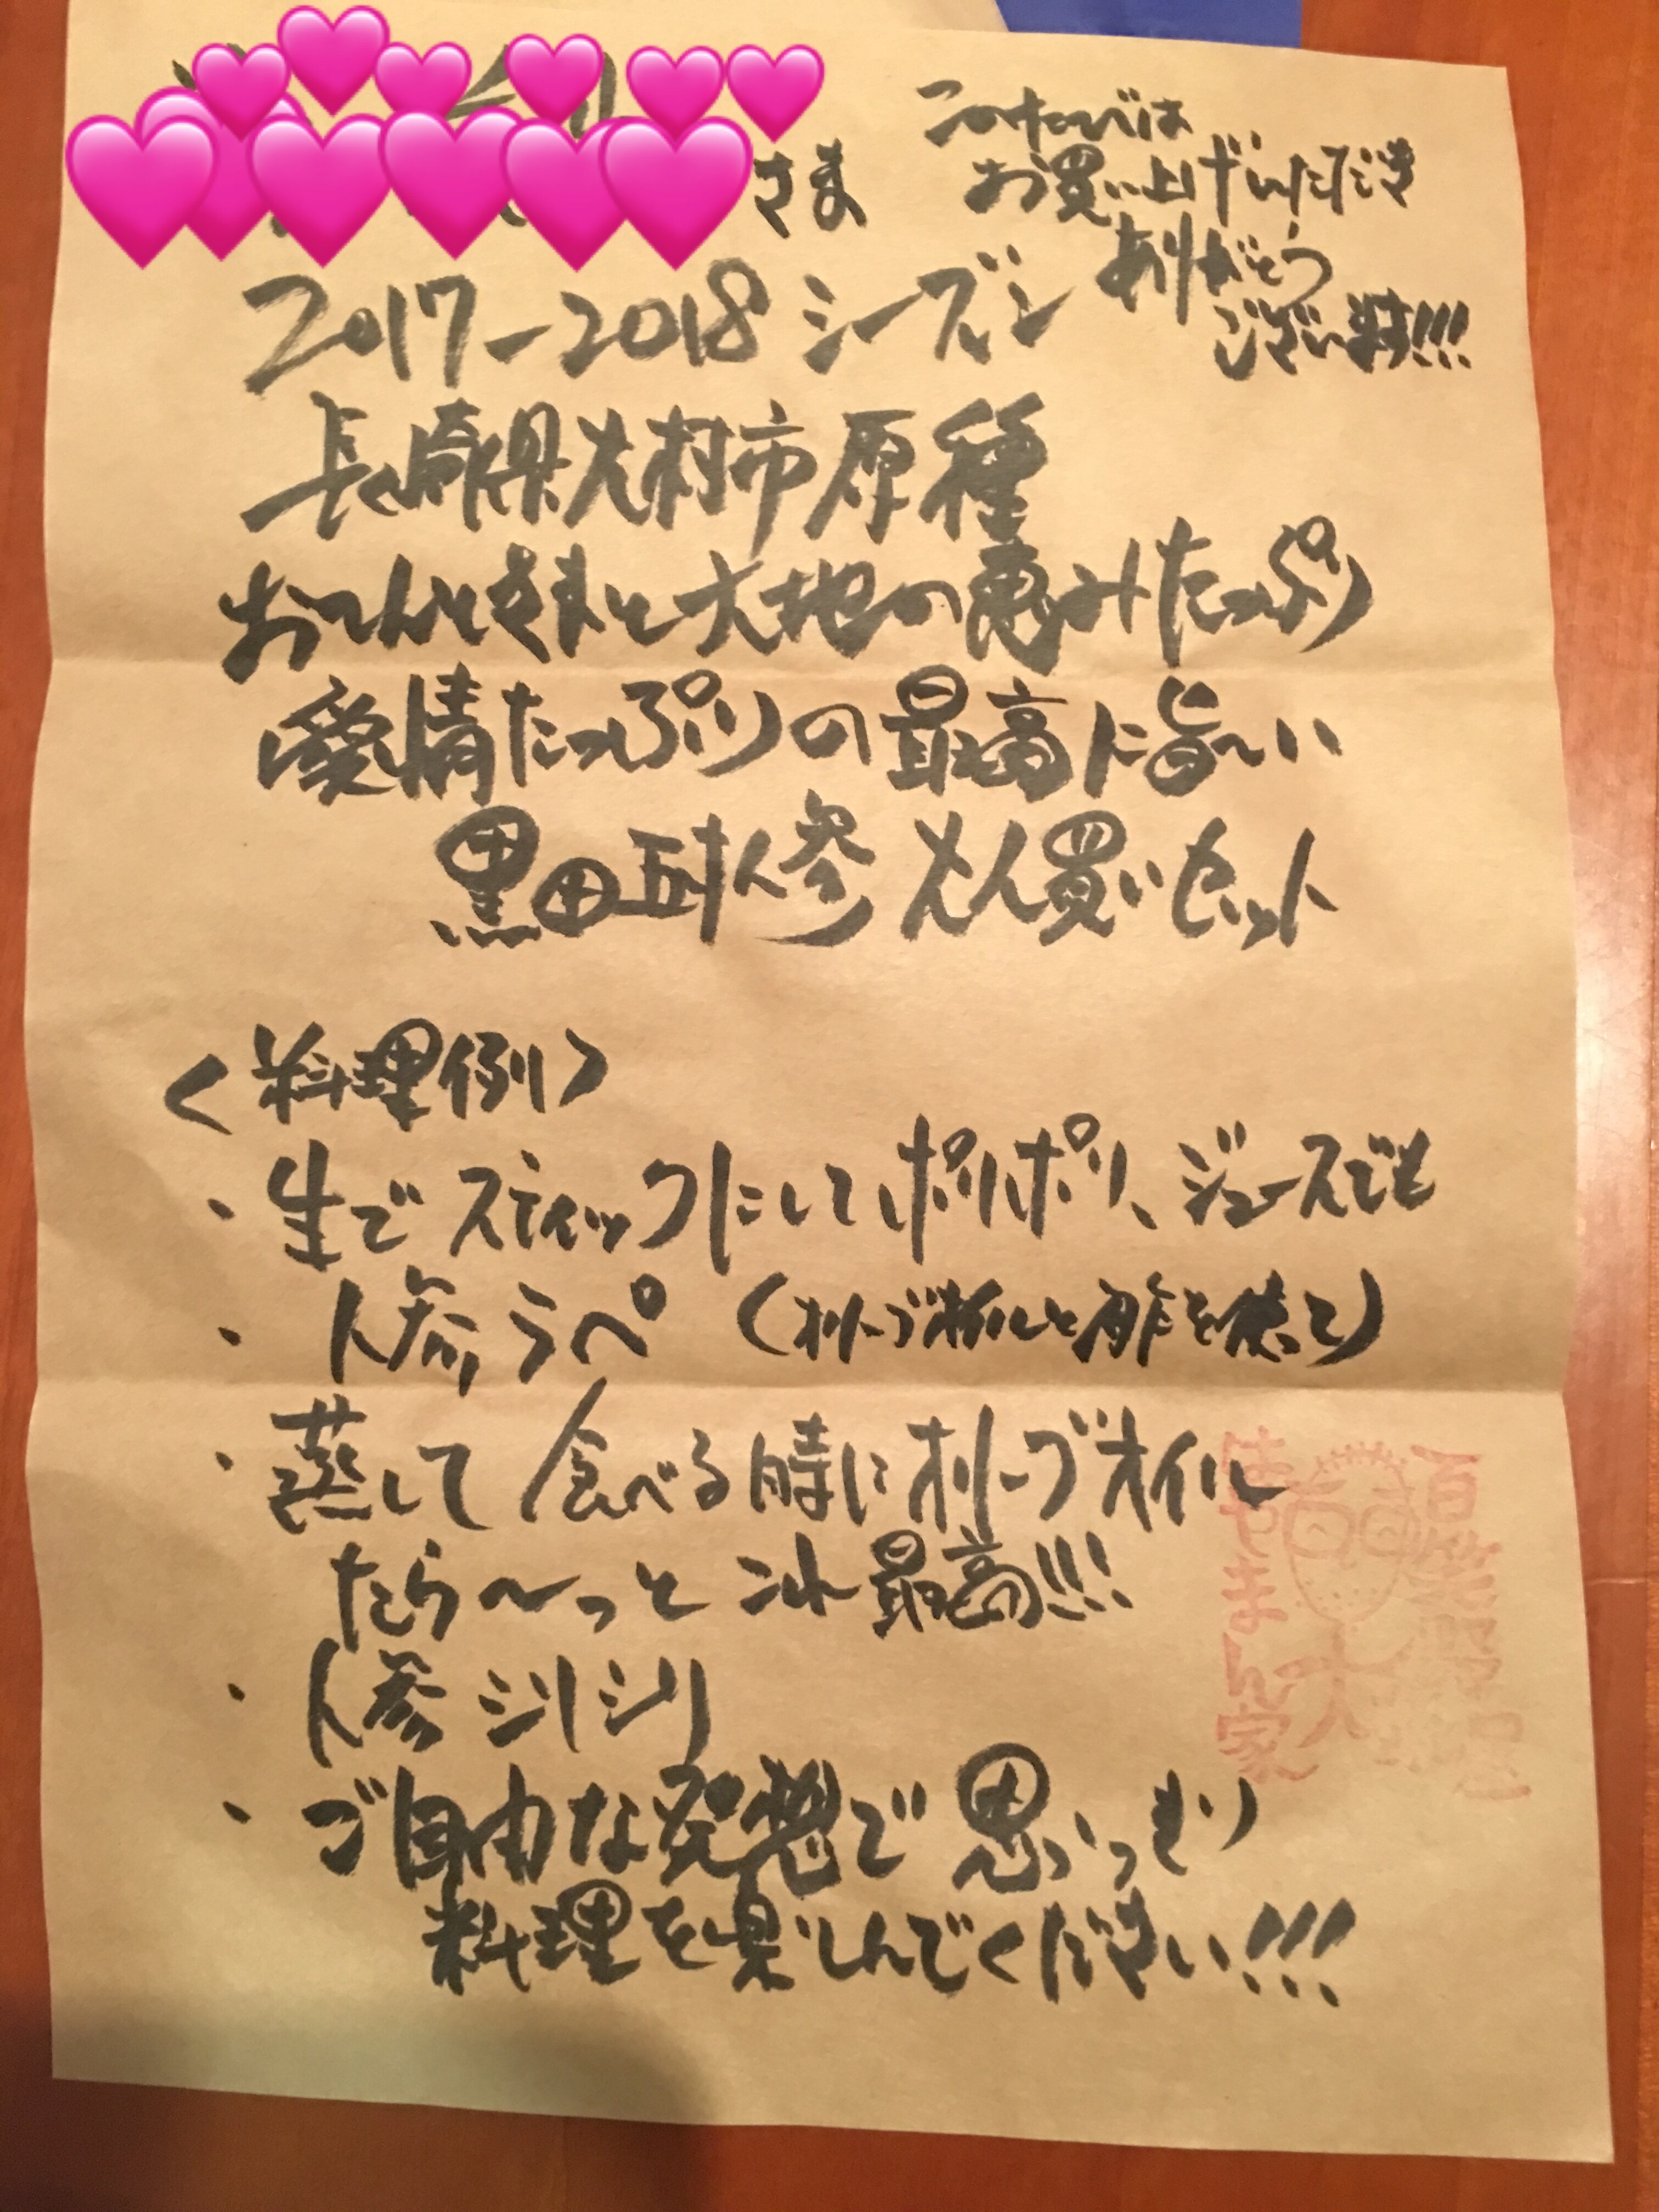 さま
このたびは
お買い上げいただき
ありがとう
ございます!!!
2017-2018 シーズン
長崎県大村市原種
おてんとさまと大地の恵みたっぷり
愛情たっぷりの最高に旨〜い
黒田五寸人参 大人買いセット
〈料理例〉
・生でスティックにしてポリポリ、ジュースでも
・人参ラペ (オリーブオイルと酢を使って)
・蒸して 食べる時にオリーブオイル
たら〜っと これ最高!!!
・人参シリシリ
・ご自由な発想で思いっきり
料理を楽しんでください!!!
百笑
やまん家